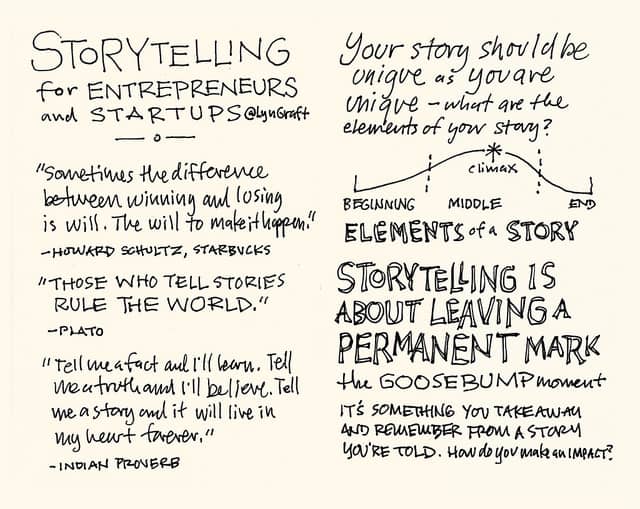 STORYTELLING
for ENTREPRENEURS
and STARTUPS @LynGraft
"Sometimes the difference
between winning and losing
is will. The will to make it happen."
-HOWARD SCHULTZ, STARBUCKS
"THOSE WHO TELL STORIES
RULE THE WORLD."
-PLATO
"Tell me a fact and I'll learn. Tell
me a truth and I'll believe. Tell
me a story and it will live in
my heart forever."
-INDIAN PROVERB
Your story should be
unique as you are
unique - what are the
elements of your story?
climax
BEGINNING MIDDLE END
ELEMENTS of a STORY
STORYTELLING IS
ABOUT LEAVING A
PERMANENT MARK
the GOOSEBUMP moment
IT'S SOMETHING YOU TAKE AWAY
AND REMEMBER FROM A STORY
YOU'RE TOLD. How do you make an IMPACT?